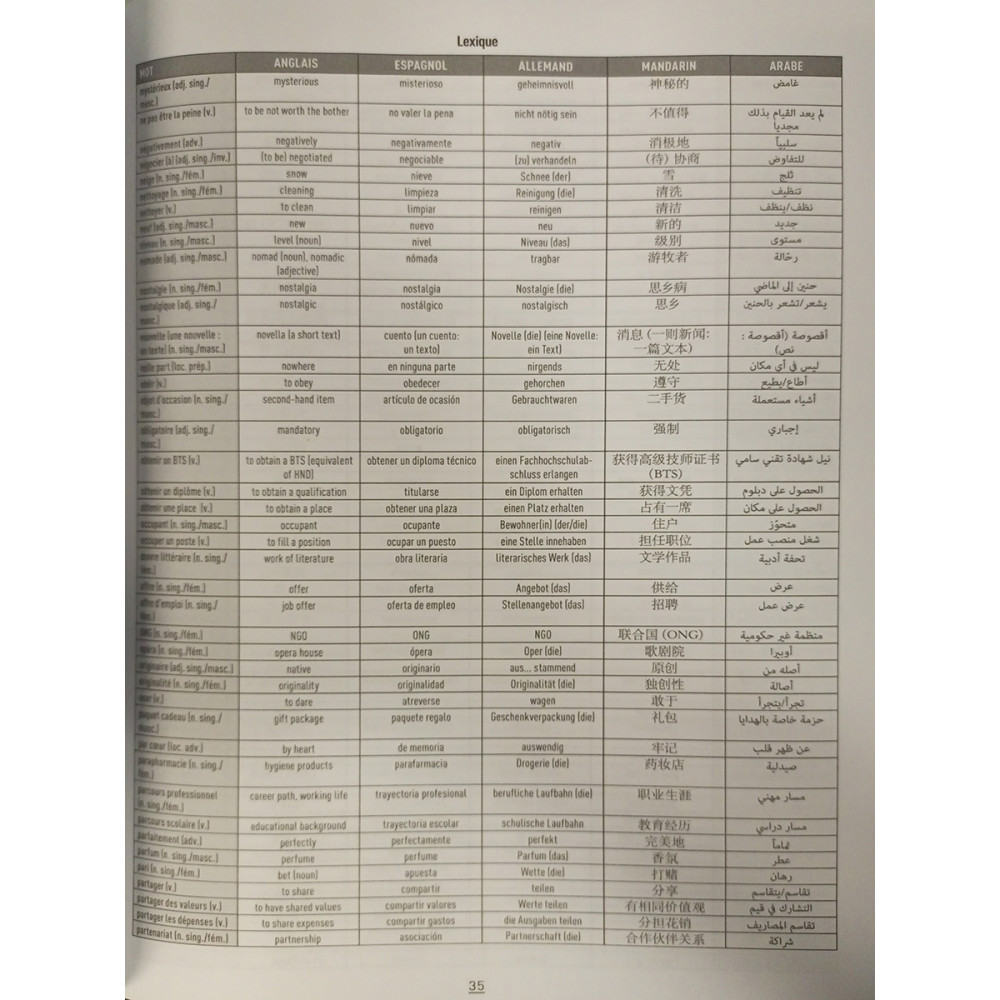 Lexique
MOT ANGLAIS ESPAGNOL ALLEMAND MANDARIN ARABE
mystérieux (adj. sing./ mysterious misterioso geheimnisvoll 神秘的 غامض
masc.)
ne pas être la peine (v.) to be not worth the bother no valer la pena nicht nötig sein 不值得 لم يعد القيام بذلك
مجدياً
négativement (adv.) negatively negativamente negativ 消极地 سلبياً
négocier (à) (adj. sing./inv.) (to be) negotiated negociable (zu) verhandeln (待) 协商 للتفاوض
neige (n. sing./fém.) snow nieve Schnee (der) 雪 ثلج
nettoyage (n. sing./masc.) cleaning limpieza Reinigung (die) 清洗 تنظيف
nettoyer (v.) to clean limpiar reinigen 清洁 نظف/ينظف
neuf (adj. sing./masc.) new nuevo neu 新的 جديد
niveau (n. sing./masc.) level (noun) nivel Niveau (das) 级别 مستوى
nomade (adj. sing./masc.) nomad (noun), nomadic nómada tragbar 游牧者 رحّالة
(adjective)
nostalgie (n. sing./fém.) nostalgia nostalgia Nostalgie (die) 思乡病 حنين إلى الماضي
nostalgique (adj. sing./ nostalgic nostálgico nostalgisch 思乡 يشعر/تشعر بالحنين
masc.)
nouvelle (une nouvelle : novella (a short text) cuento (un cuento: Novelle (die) (eine Novelle: 消息 (一则新闻: أقصوصة (أقصوصة :
un texte) (n. sing./masc.) un texto) ein Text) 一篇文本) نص)
nulle part (loc. prép.) nowhere en ninguna parte nirgends 无处 ليس في أي مكان
obéir (v.) to obey obedecer gehorchen 遵守 أطاع/يطيع
objet d'occasion (n. sing./ second-hand item artículo de ocasión Gebrauchtwaren 二手货 أشياء مستعملة
masc.)
obligatoire (adj. sing./ mandatory obligatorio obligatorisch 强制 إجباري
masc.)
obtenir un BTS (v.) to obtain a BTS (equivalent obtener un diploma técnico einen Fachhochschulab- 获得高级技师证书 نيل شهادة تقني سامي
of HND) schluss erlangen (BTS)
obtenir un diplôme (v.) to obtain a qualification titularse ein Diplom erhalten 获得文凭 الحصول على دبلوم
obtenir une place (v.) to obtain a place obtener una plaza einen Platz erhalten 占有一席 الحصول على مكان
occupant (n. sing./masc.) occupant ocupante Bewohner(in) (der/die) 住户 متحوّز
occuper un poste (v.) to fill a position ocupar un puesto eine Stelle innehaben 担任职位 شغل منصب عمل
œuvre littéraire (n. sing./ work of literature obra literaria literarisches Werk (das) 文学作品 تحفة أدبية
fém.)
offre (n. sing./fém.) offer oferta Angebot (das) 供给 عرض
offre d'emploi (n. sing./ job offer oferta de empleo Stellenangebot (das) 招聘 عرض عمل
fém.)
ONG (n. sing./fém.) NGO ONG NGO 联合国 (ONG) منظمة غير حكومية
opéra (n. sing./fém.) opera house ópera Oper (die) 歌剧院 أوبيرا
originaire (adj. sing./masc.) native originario aus... stammend 原创 أصله من
originalité (n. sing./fém.) originality originalidad Originalität (die) 独创性 أصالة
oser (v.) to dare atreverse wagen 敢于 تجرأ/يتجرأ
paquet cadeau (n. sing./ gift package paquete regalo Geschenkverpackung (die) 礼包 حزمة خاصة بالهدايا
masc.)
par cœur (loc. adv.) by heart de memoria auswendig 牢记 عن ظهر قلب
parapharmacie (n. sing./ hygiene products parafarmacia Drogerie (die) 药妆店 صيدلية
fém.)
parcours professionnel career path, working life trayectoria profesional berufliche Laufbahn (die) 职业生涯 مسار مهني
(n. sing./fém.)
parcours scolaire (v.) educational background trayectoria escolar schulische Laufbahn 教育经历 مسار دراسي
parfaitement (adv.) perfectly perfectamente perfekt 完美地 تماماً
parfum (n. sing./masc.) perfume perfume Parfum (das) 香氛 عطر
pari (n. sing./fém.) bet (noun) apuesta Wette (die) 打赌 رهان
partager (v.) to share compartir teilen 分享 تقاسم/يتقاسم
partager des valeurs (v.) to have shared values compartir valores Werte teilen 有相同价值观 التشارك في قيم
partager les dépenses (v.) to share expenses compartir gastos die Ausgaben teilen 分担花销 تقاسم المصاريف
partenariat (n. sing./fém.) partnership asociación Partnerschaft (die) 合作伙伴关系 شراكة
35